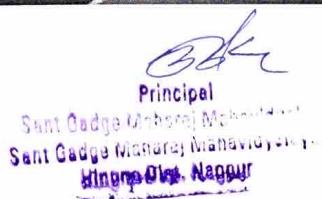 Principal
Sant Gadge Maharaj
Sant Gadge Maharaj Mahavidyalaya,
Hingna Dist. Nagpur